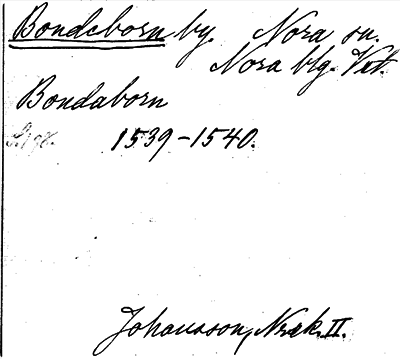 Bondeborn by. Nora sn.
Nora blg. Vstm.
Bondaborn
1539-1540.
Johansson, Norak. II.